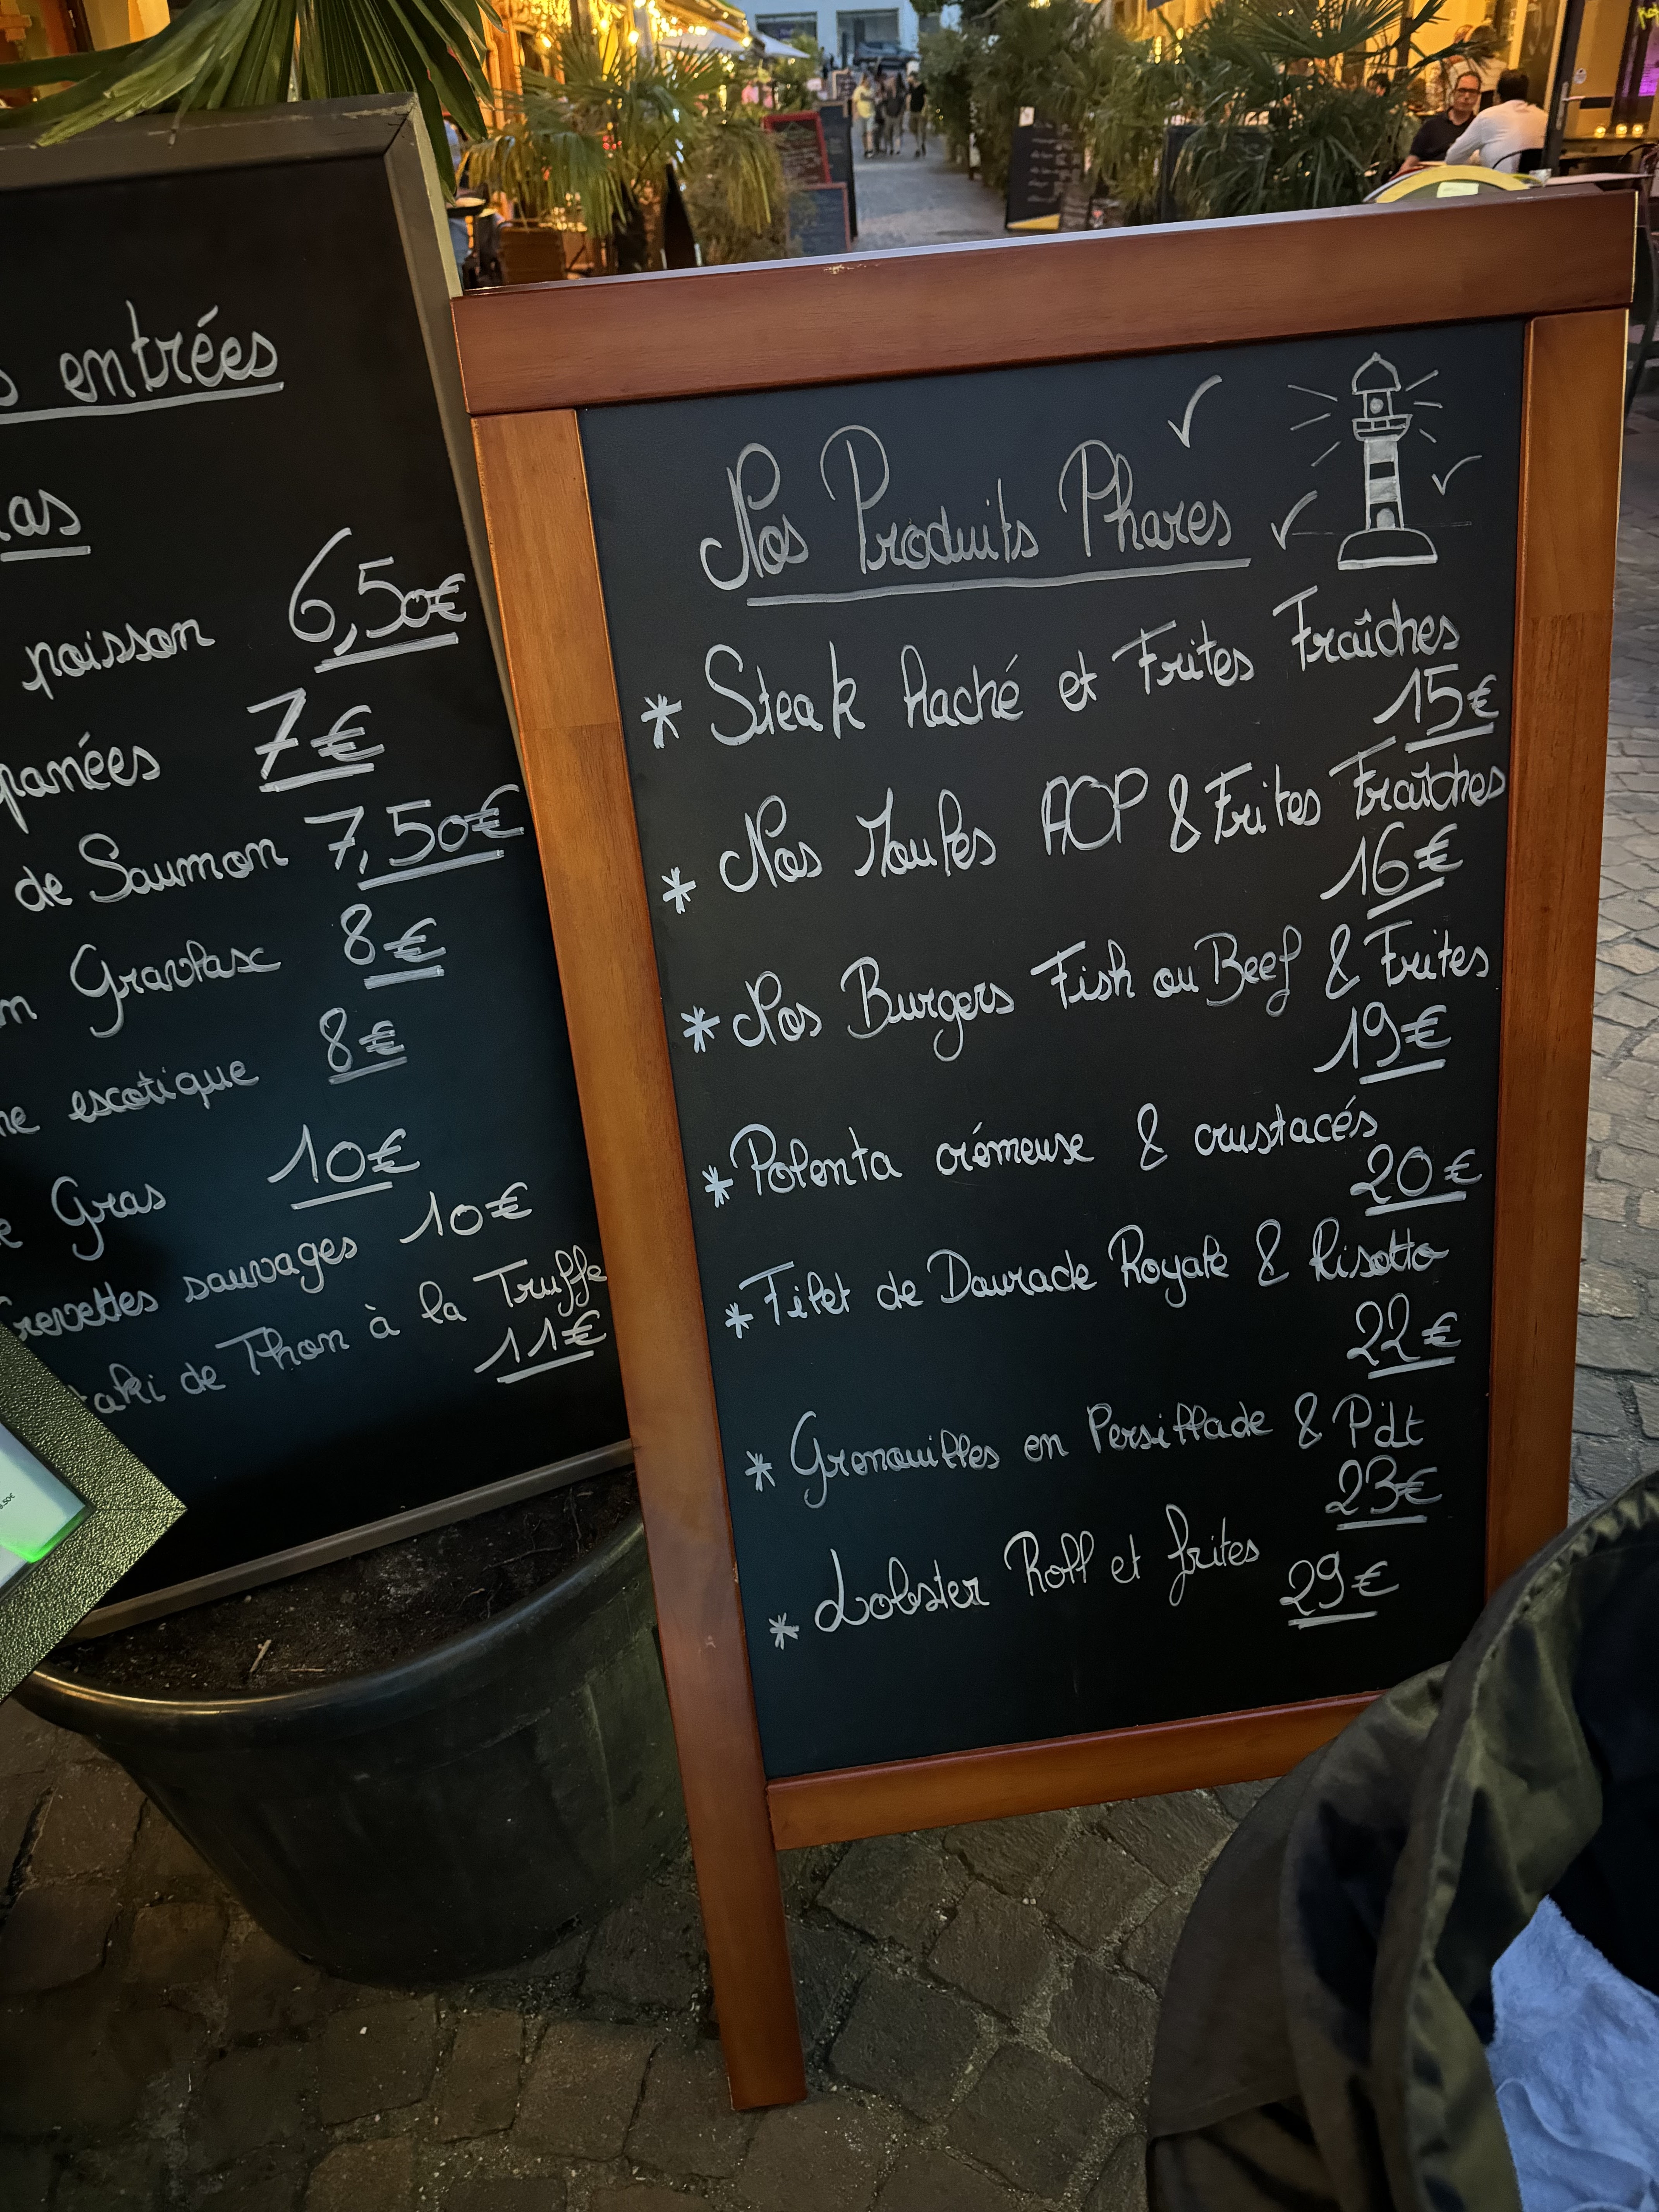 entrées
poisson 6,50€
panées 7€
de Saumon 7,50€
Gravlax 8€
exotique 8€
Gras 10€
sauvages 10€
de Thon à la Truffe
11€
Nos Produits Phares
* Steak haché et Frites Fraîches
15€
* Nos Moules AOP & Frites Fraîches
16€
* Nos Burgers Fish ou Beef & Frites
19€
* Polenta crémeuse & crustacés
20€
* Filet de Daurade Royale & Risotto
22€
* Grenouilles en Persillade & Pdt
23€
* Lobster Roll et frites 29€